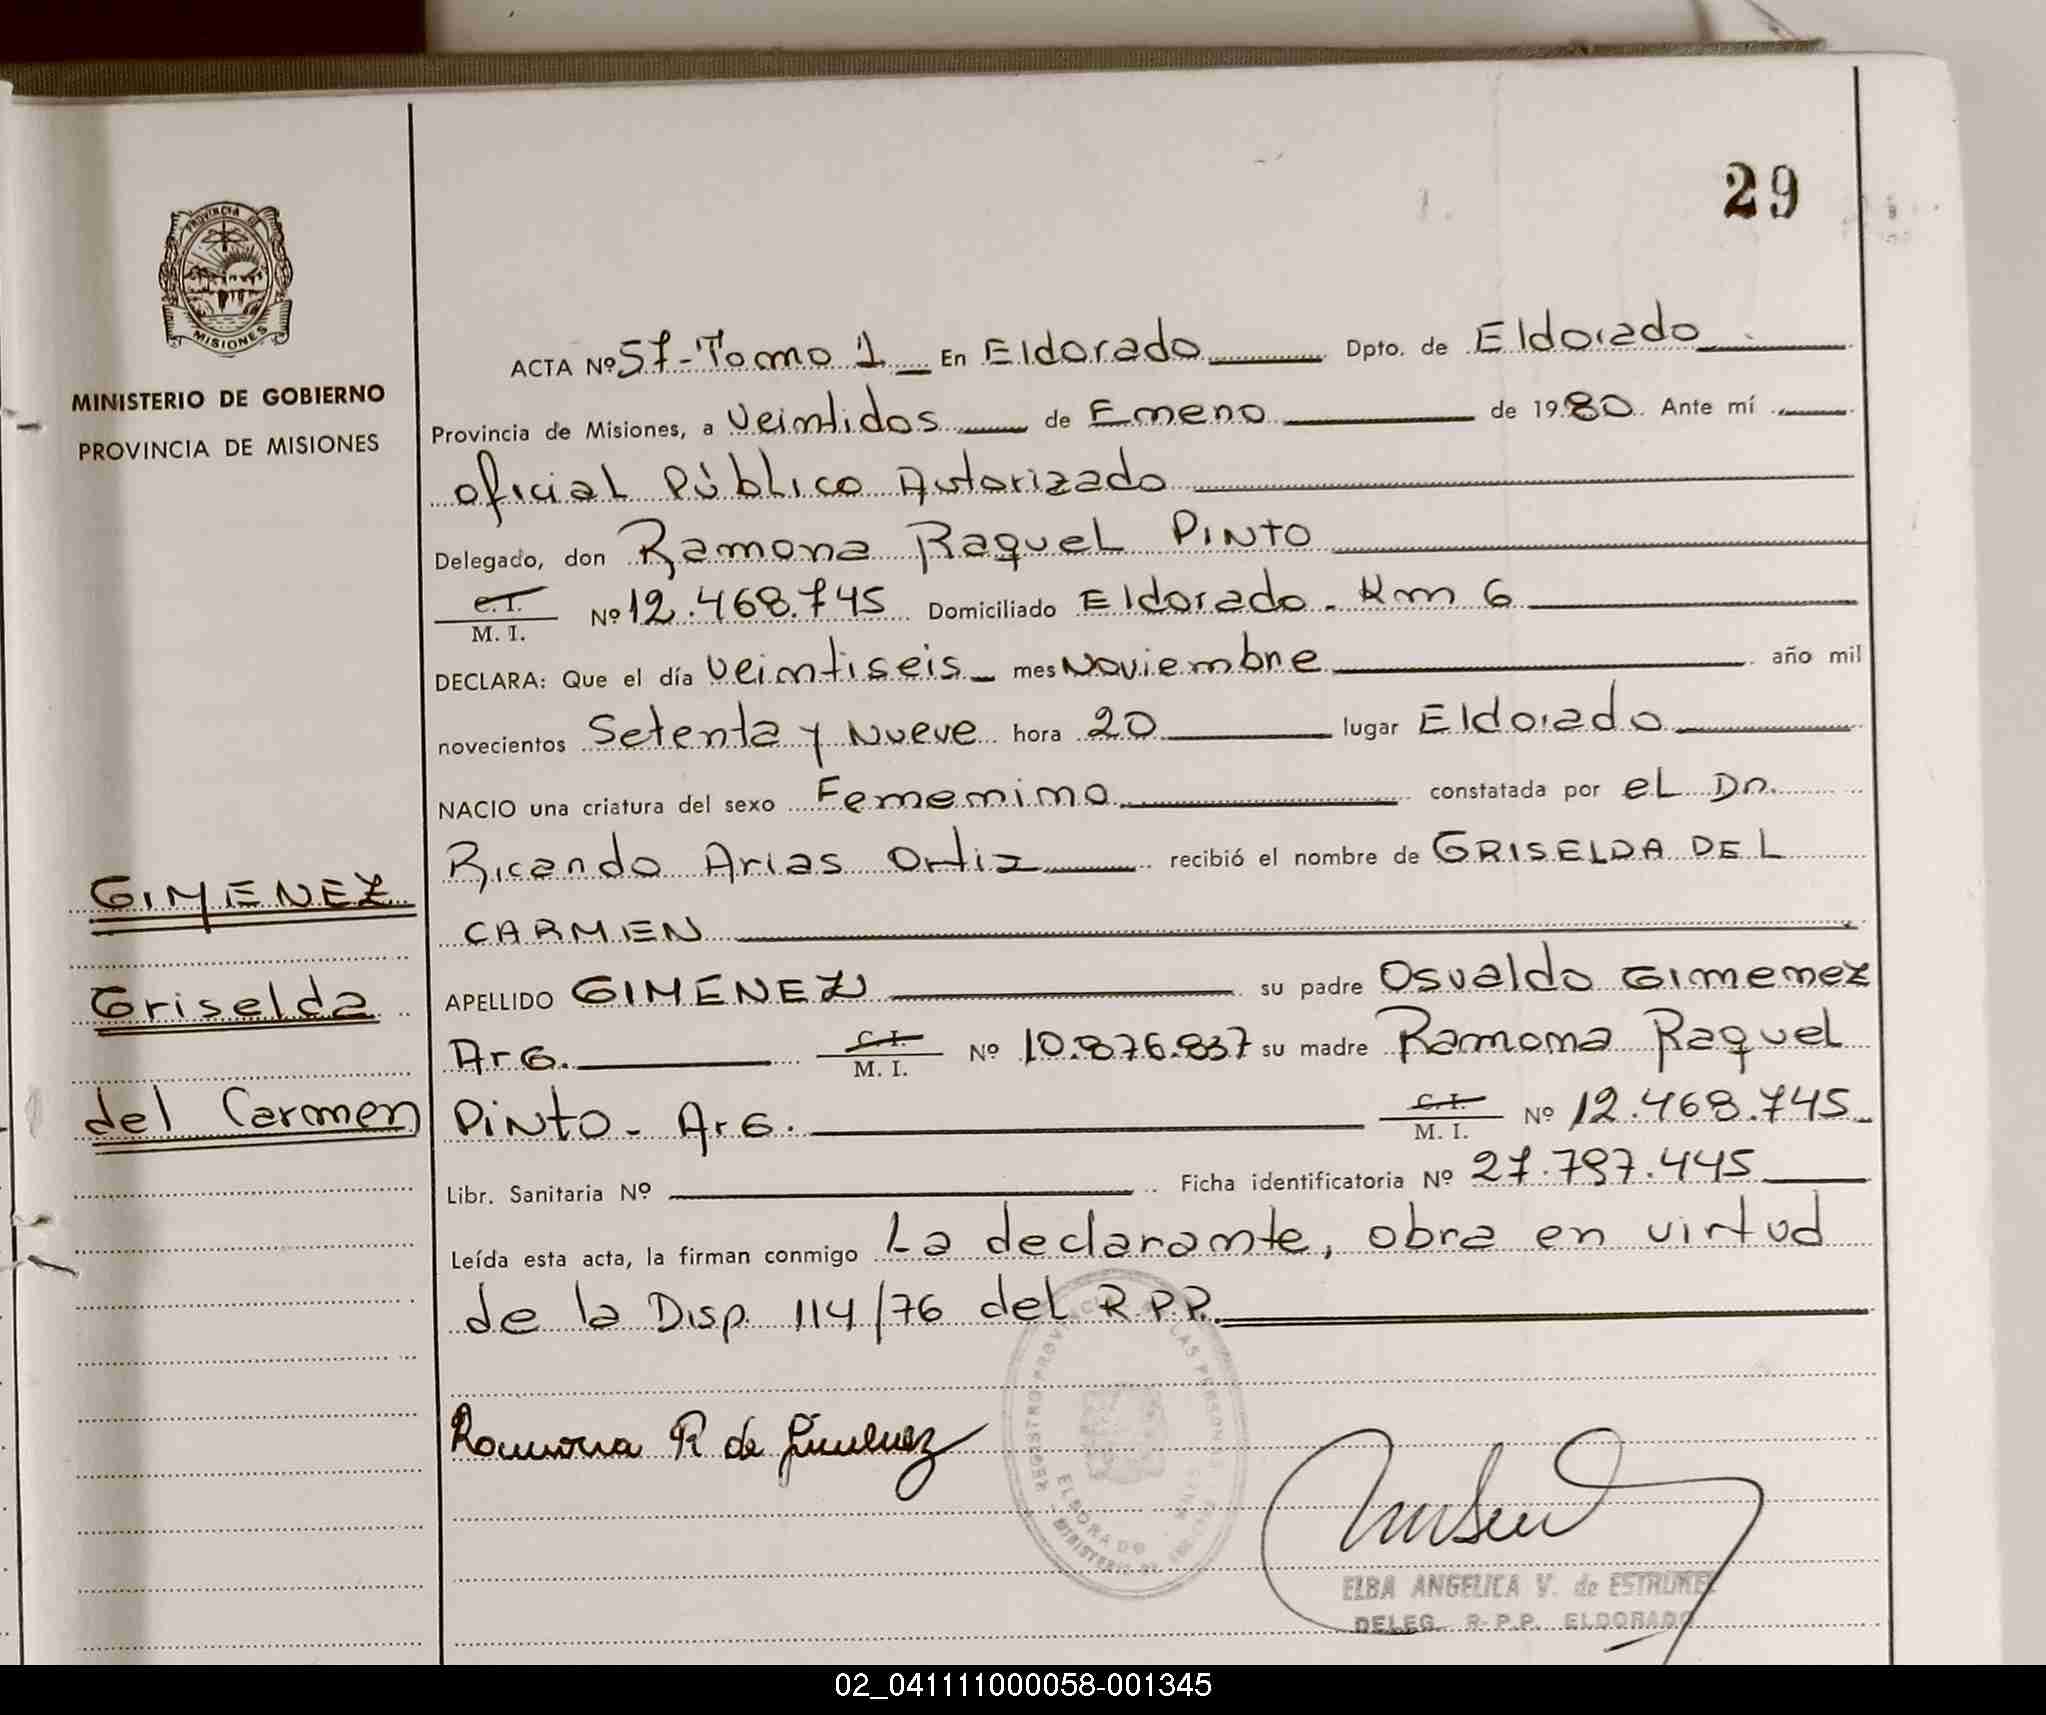 29
PROVINCIA DE
MISIONES
MINISTERIO DE GOBIERNO
PROVINCIA DE MISIONES
ACTA Nº 57-Tomo 1 En Eldorado Dpto. de Eldorado
Provincia de Misiones, a Veintidos de Enero de 1980 Ante mí
oficial Público Autorizado
Delegado, don Ramona Raquel PINTO
C. I.
M. I. Nº 12.468.745 Domiciliado Eldorado - Km 6
DECLARA: Que el día Veintiseis mes Noviembre año mil
novecientos Setenta y Nueve hora 20 lugar Eldorado
NACIO una criatura del sexo Femenino constatada por el Dr.
Ricardo Arias Ortiz recibió el nombre de GRISELDA DEL
CARMEN
APELLIDO GIMENEZ su padre Osvaldo Gimenez
Arg. C. I.
M. I. Nº 10.876.837 su madre Ramona Raquel
PINTO - Arg. C. I.
M. I. Nº 12.468.745
Libr. Sanitaria Nº Ficha identificatoria Nº 27.797.445
Leída esta acta, la firman conmigo La declarante, obra en virtud
de la Disp. 114/76 del R.P.P.
GIMENEZ
Griselda
del Carmen
Ramona R de Gimenez
REGISTRO PROVINCIAL DE LAS PERSONAS
ELDORADO
MINISTERIO DE
ELBA ANGELICA V. de
DELEG. R.P.P. ELDORADO
02_041111000058-001345